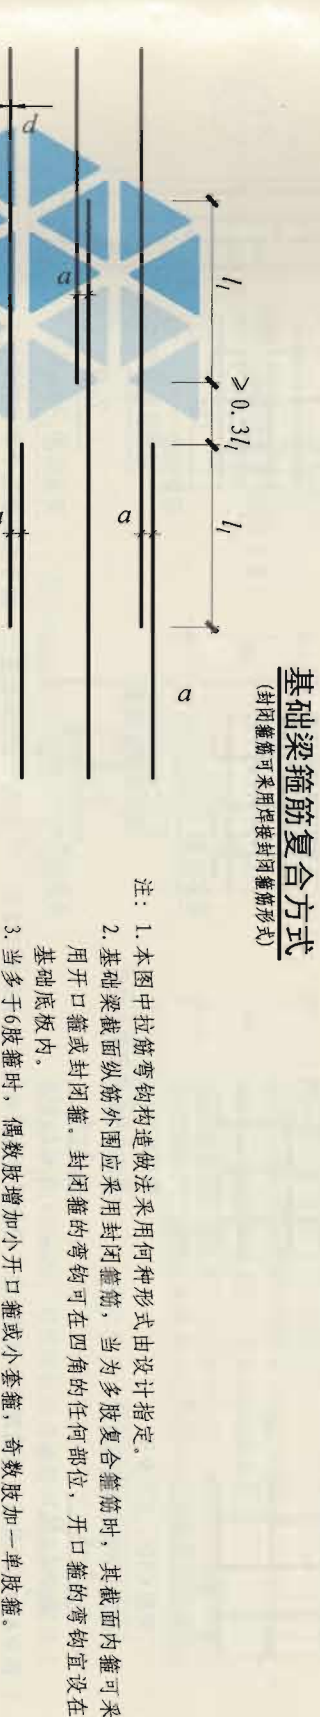 基础梁箍筋复合方式
(封闭箍筋可采用焊接封闭箍筋形式)
注: 1. 本图中拉筋弯钩构造做法采用何种形式由设计指定。
2. 基础梁截面纵筋外围应采用封闭箍筋, 当为多肢复合箍筋时, 其截面内箍可采
用开口箍或封闭箍。封闭箍的弯钩可在四角的任何部位, 开口箍的弯钩宜设在
基础底板内。
3. 当多于6肢箍时, 偶数肢增加小开口箍或小套箍, 奇数肢加一单肢箍。
l_l
≥0.3l_l
l_l
d
a
a
a
a